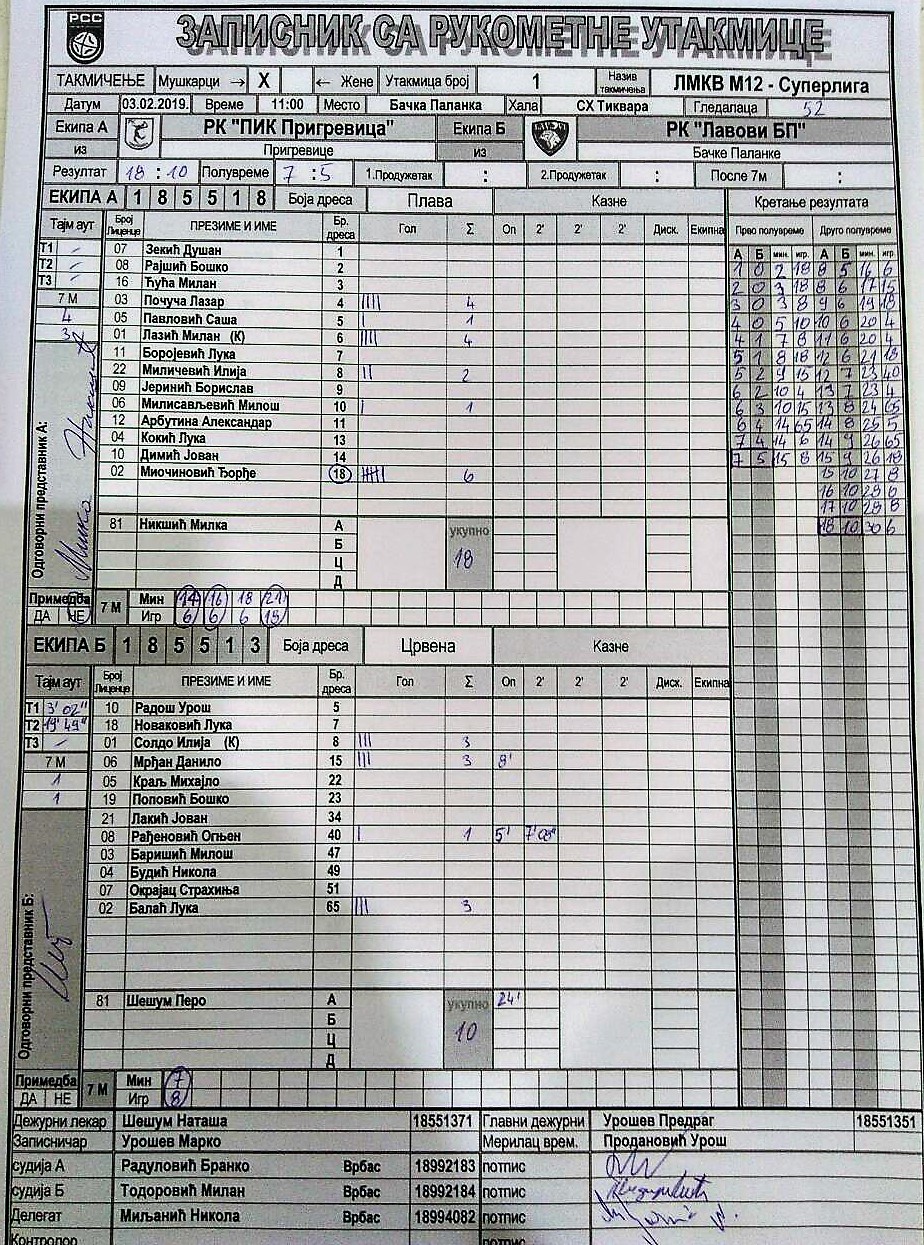 РСС
ЗАПИСНИК СА РУКОМЕТНЕ УТАКМИЦЕ
ТАКМИЧЕЊЕ Мушкарци → X ← Жене Утакмица број 1 Назив такмичења ЛМКВ М12 - Суперлига
Датум 03.02.2019. Време 11:00 Место Бачка Паланка Хала СХ Тиквара Гледалаца 52
Екипа А РК "ПИК Пригревица" Екипа Б РК "Лавови БП"
из Пригревице из Бачке Паланке
Резултат 18 : 10 Полувреме 7 : 5 1.Продужетак : 2.Продужетак : После 7м :
ЕКИПА А 1 8 5 5 1 8 Боја дреса Плава Казне Кретање резултата
Тајм аут Број Лиценце ПРЕЗИМЕ И ИМЕ Бр. дреса Гол Σ Оп 2' 2' 2' Диск. Екипна Прво полувреме Друго полувреме
А Б мин. игр. А Б мин. игр.
Т1 - 07 Зекић Душан 1
Т2 - 08 Рајшић Бошко 2
Т3 - 16 Ћућа Милан 3
7 М 03 Почуча Лазар 4 IIII 4
4 05 Павловић Саша 5 I 1
3 01 Лазић Милан (К) 6 IIII 4
11 Боројевић Лука 7
22 Миличевић Илија 8 II 2
09 Јеринић Борислав 9
06 Милисављевић Милош 10 I 1
12 Арбутина Александар 11
04 Кокић Лука 13
10 Димић Јован 14
02 Миочиновић Ђорђе 18 6
1 0 2 18 8 5 16 6
2 0 3 18 8 6 17 15
3 0 3 8 9 6 19 18
4 0 5 10 10 6 20 4
4 1 7 8 11 6 20 4
5 1 8 18 12 6 21 18
5 2 9 15 12 7 23 40
6 2 10 4 13 7 23 4
6 3 10 15 13 8 24 65
6 4 14 65 14 8 25 5
7 4 14 6 14 9 26 65
7 5 15 8 15 9 26 18
15 10 27 8
16 10 28 6
17 10 28 8
18 10 30 6
Одговорни представник А:
81 Никшић Милка А укупно
Б
Ц 18
Д
Примедба 7 М Мин 14 16 18 21
ДА НЕ Игр 6 6 6
ЕКИПА Б 1 8 5 5 1 3 Боја дреса Црвена Казне
Тајм аут Број Лиценце ПРЕЗИМЕ И ИМЕ Бр. дреса Гол Σ Оп 2' 2' 2' Диск. Екипна
Т1 3'02" 10 Радош Урош 5
Т2 19'49" 18 Новаковић Лука 7
Т3 - 01 Солдо Илија (К) 8 III 3
7 М 06 Мрђан Данило 15 III 3 8'
1 05 Краљ Михајло 22
1 19 Поповић Бошко 23
21 Лакић Јован 34
08 Рађеновић Огњен 40 I 1 5'
03 Баришић Милош 47
04 Будић Никола 49
07 Окрајац Страхиња 51
02 Балаћ Лука 65 III 3
Одговорни представник Б:
81 Шешум Перо А укупно 24'
Б
Ц 10
Д
Примедба 7 М Мин 7
ДА НЕ Игр 8
Дежурни лекар Шешум Наташа 18551371 Главни дежурни Урошев Предраг 18551351
Записничар Урошев Марко Мерилац врем. Продановић Урош
судија А Радуловић Бранко Врбас 18992183 потпис
судија Б Тодоровић Милан Врбас 18992184 потпис
Делегат Миљанић Никола Врбас 18994082 потпис
Контролор потпис